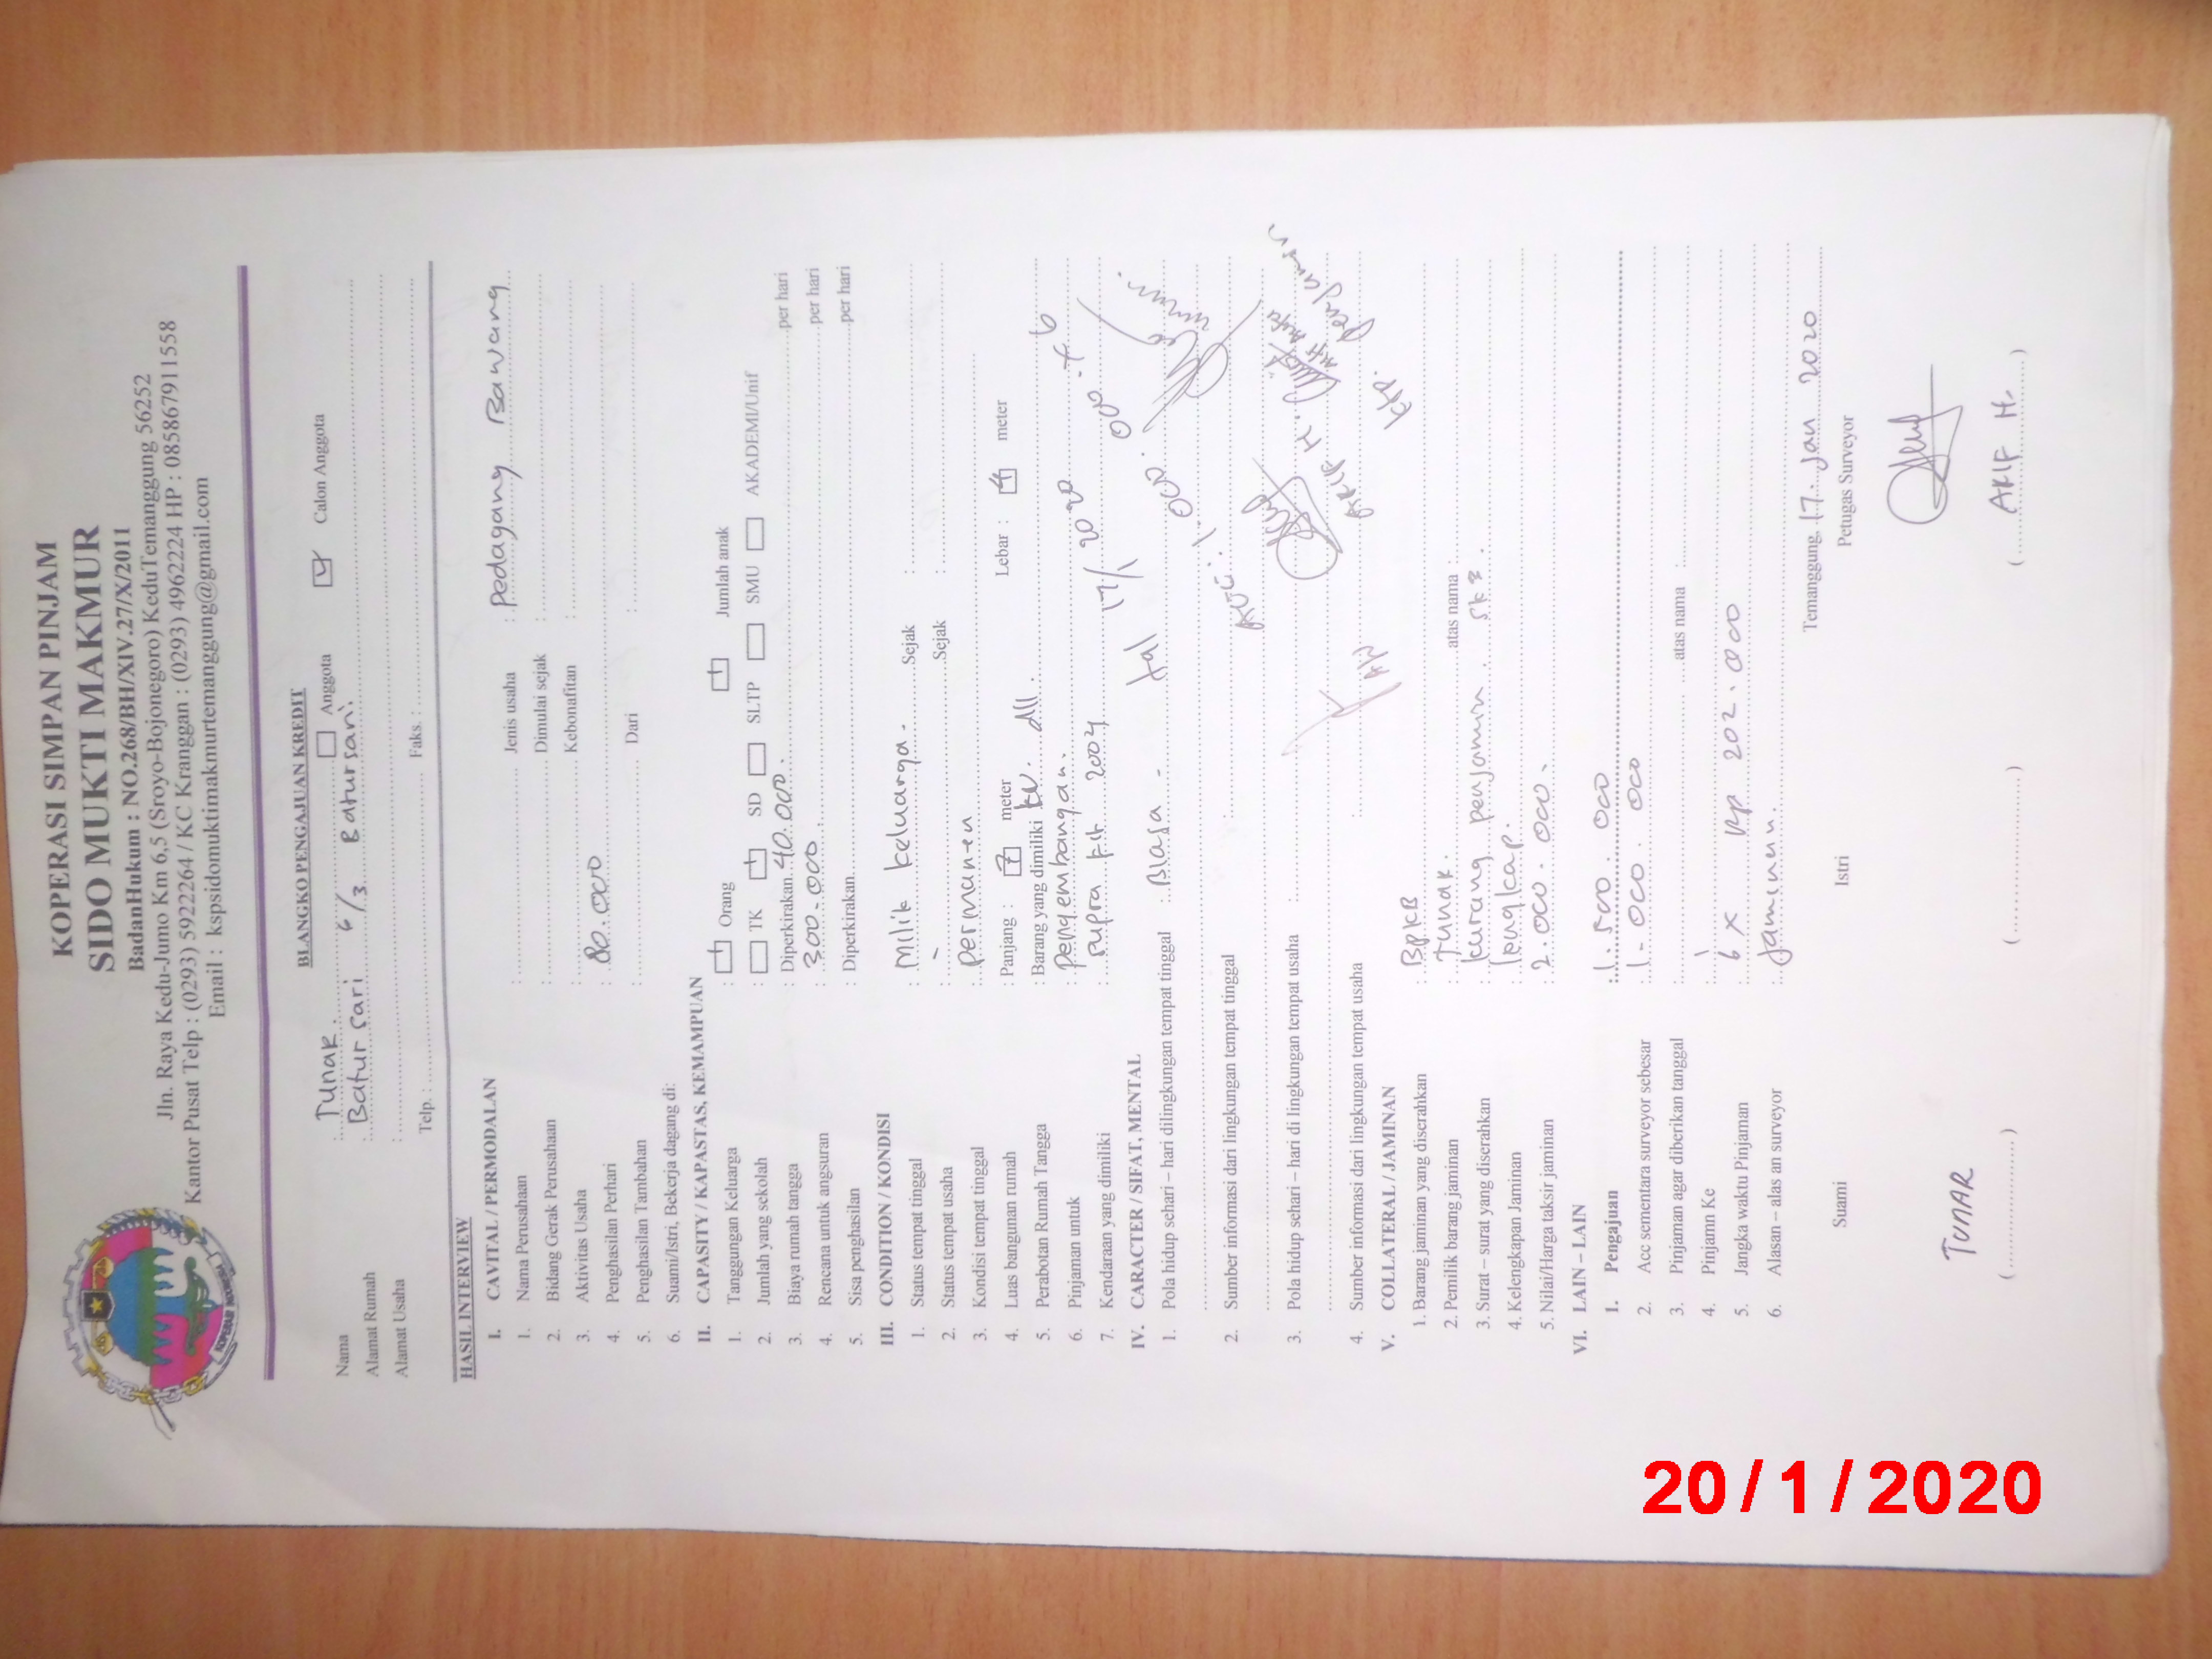 KOPERASI SIMPAN PINJAM
SIDO MUKTI MAKMUR
BadanHukum : NO.268/BH/XIV.27/X/2011
Jln. Raya Kedu-Jumo Km 6,5 (Sroyo-Bojonegoro) KeduTemanggung 56252
Kantor Pusat Telp : (0293) 5922264 / KC Kranggan : (0293) 4962224 HP : 085867911558
Email : kspsidomuktimakmurtemanggung@gmail.com
BLANGKO PENGAJUAN KREDIT
Nama : Tunar. Anggota Calon Anggota
Alamat Rumah : Batur sari 6/3 Batursari.
Alamat Usaha :
Telp. : Faks. :
HASIL INTERVIEW
I. CAVITAL / PERMODALAN
1. Nama Perusahaan : Jenis usaha : Pedagang Bawang
2. Bidang Gerak Perusahaan : Dimulai sejak :
3. Aktivitas Usaha : Kebonafitan :
4. Penghasilan Perhari : 80.000
5. Penghasilan Tambahan : Dari :
6. Suami/Istri, Bekerja dagang di:
II. CAPASITY / KAPASTAS, KEMAMPUAN
1. Tanggungan Keluarga : Orang Jumlah anak
2. Jumlah yang sekolah : TK SD SLTP SMU AKADEMI/Unif
3. Biaya rumah tangga : Diperkirakan 40.000. per hari
4. Rencana untuk angsuran : 300.000 per hari
5. Sisa penghasilan : Diperkirakan per hari
III. CONDITION / KONDISI
1. Status tempat tinggal : Milik keluarga - Sejak :
2. Status tempat usaha : - Sejak :
3. Kondisi tempat tinggal : permanen
4. Luas bangunan rumah : Panjang : 7 meter Lebar : meter
5. Perabotan Rumah Tangga : Barang yang dimiliki tv. dll.
6. Pinjaman untuk : pengembangan.
7. Kendaraan yang dimiliki : supra fit 2004
17/1 2020
IV. CARACTER / SIFAT, MENTAL
1. Pola hidup sehari – hari dilingkungan tempat tinggal : Biasa -
2. Sumber informasi dari lingkungan tempat tinggal :
3. Pola hidup sehari – hari di lingkungan tempat usaha :
ARIF H.
4. Sumber informasi dari lingkungan tempat usaha :
V. COLLATERAL / JAMINAN
1. Barang jaminan yang diserahkan : BPKB
2. Pemilik barang jaminan : Tunar. atas nama :
3. Surat – surat yang diserahkan : kurang penjamin.
4. Kelengkapan Jaminan : lengkap.
5. Nilai/Harga taksir jaminan : 2.000.000.
VI. LAIN – LAIN
1. Pengajuan : 1.500.000
2. Acc sementara surveyor sebesar : 1.000.000
3. Pinjaman agar diberikan tanggal : atas nama :
4. Pinjamn Ke : 1
5. Jangka waktu Pinjaman : 6 x Rp 202.000
6. Alasan – alas an surveyor : Jaminan.
Temanggung, 17. Jan 2020
Suami Istri Petugas Surveyor
TUNAR ARIF H.
20/1/2020